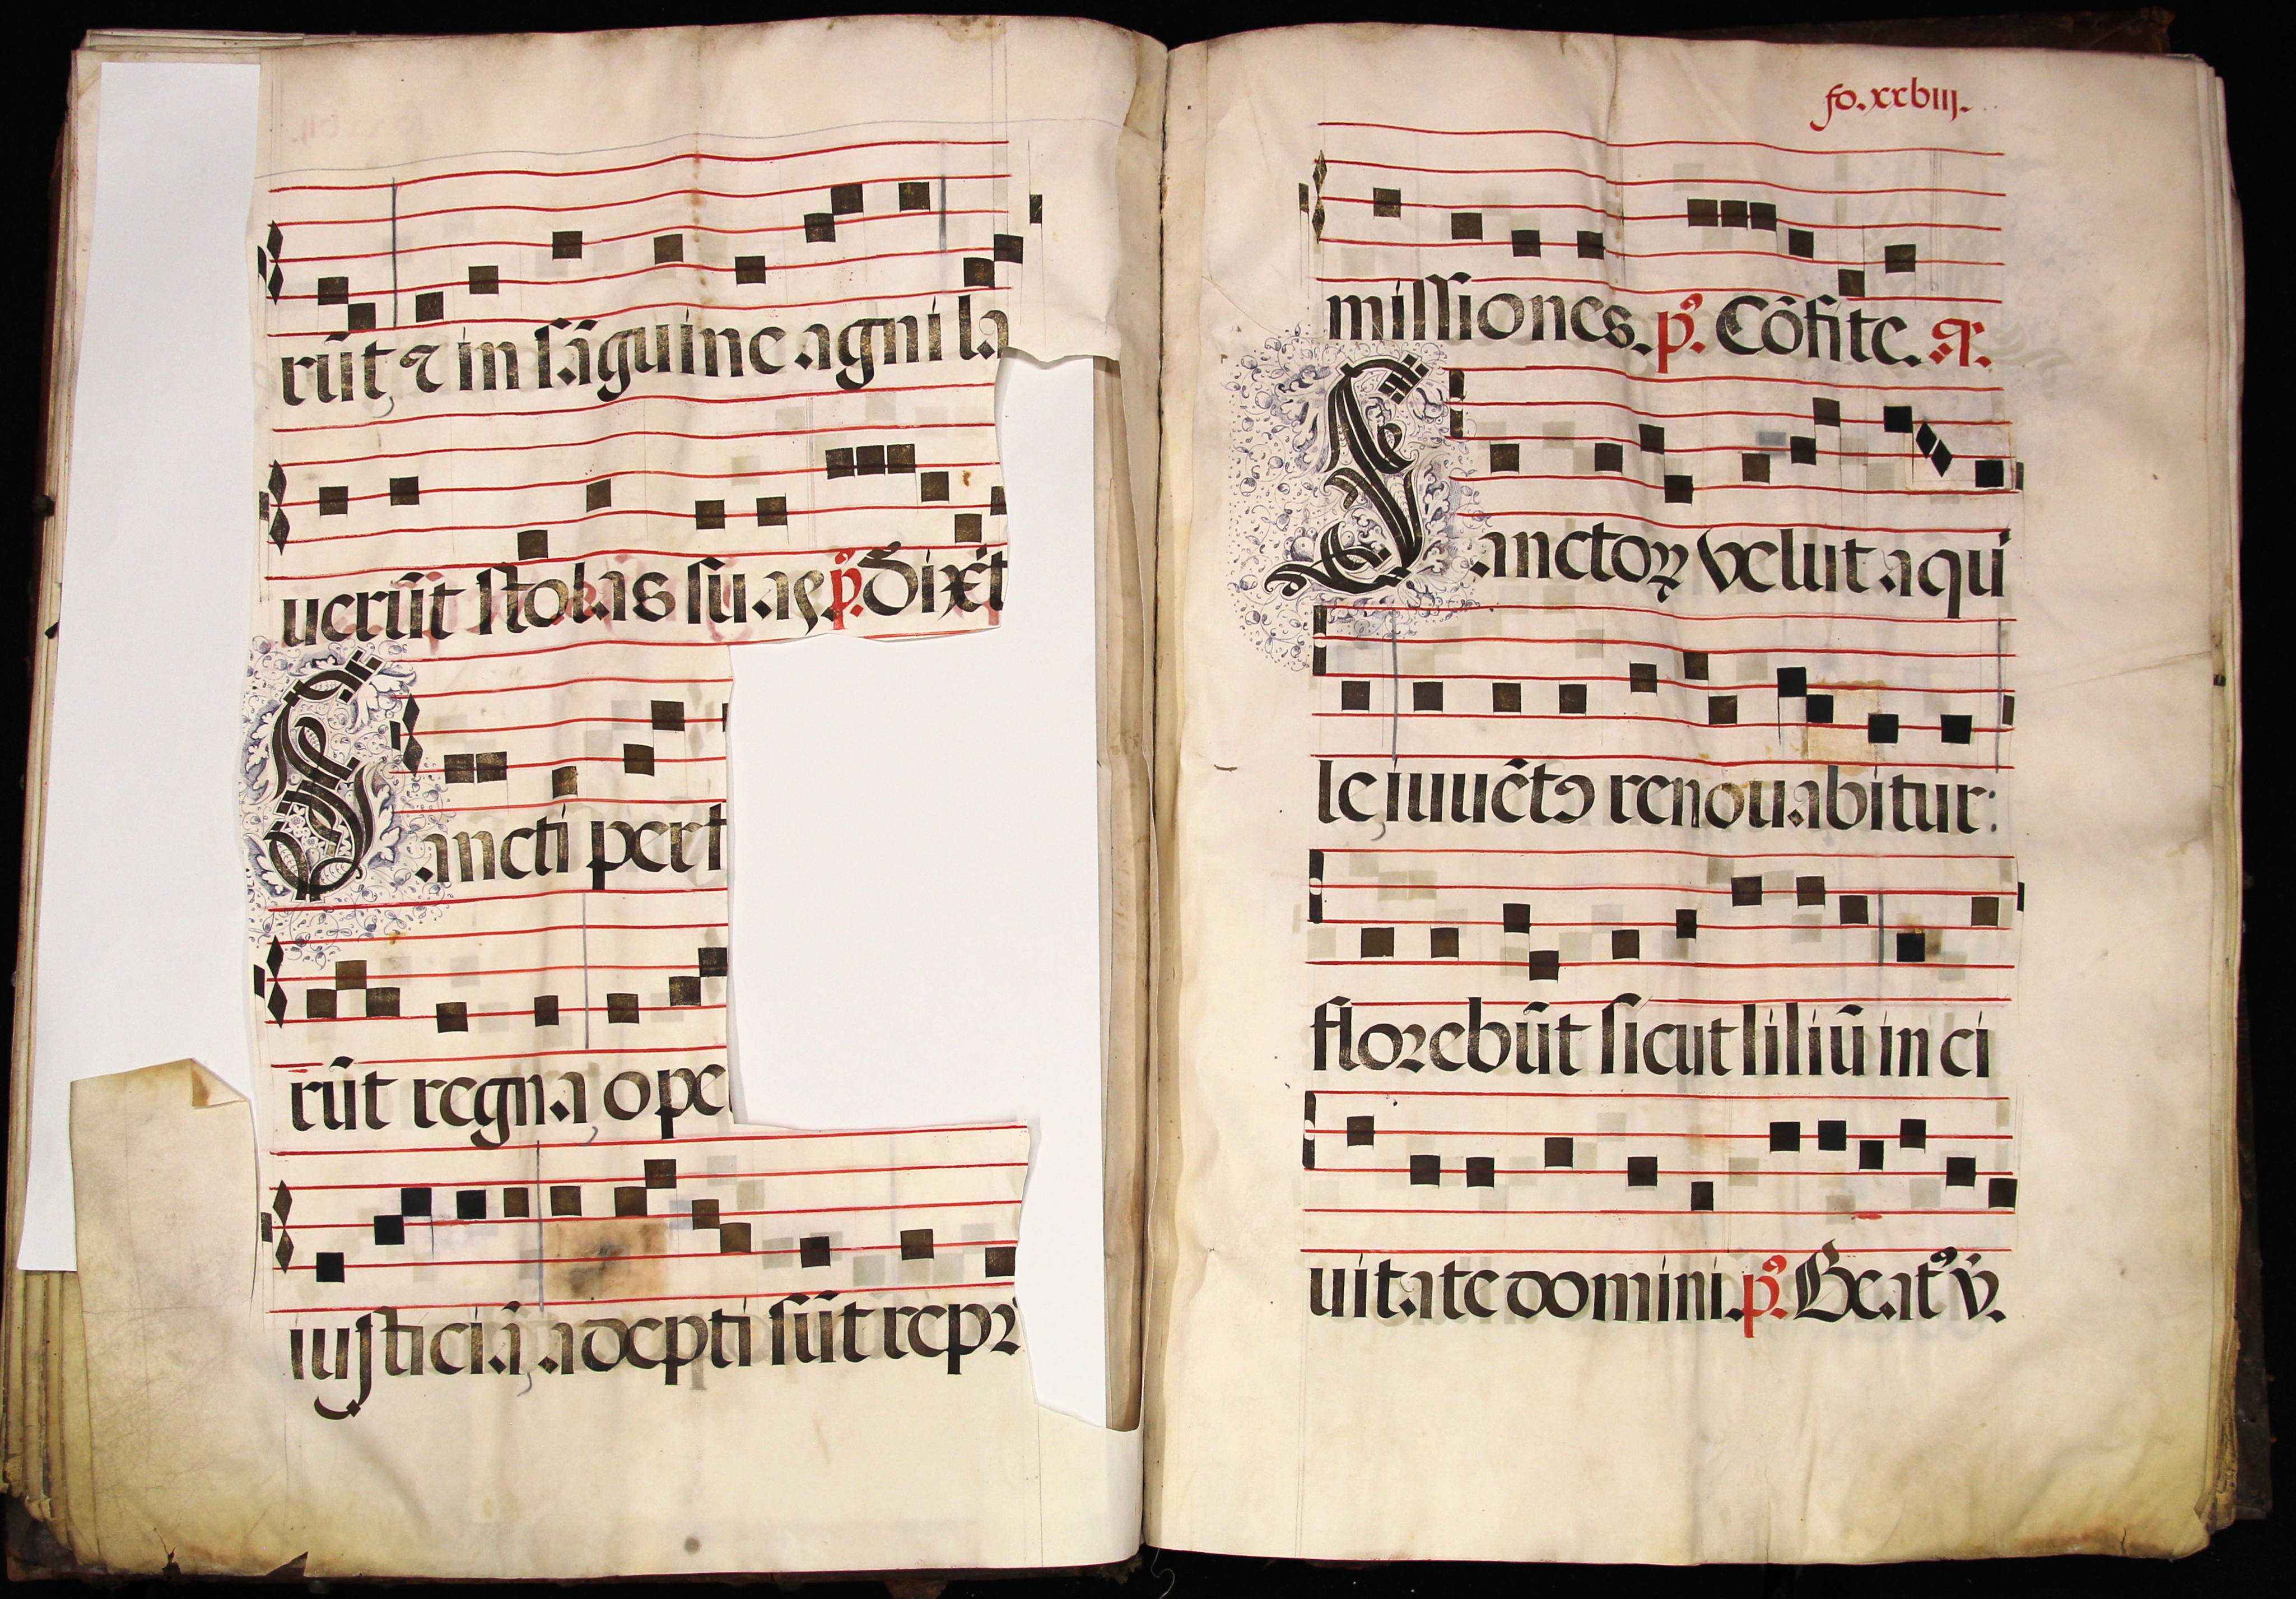 rūt ⁊ in sāguine agni la
uerūt stolas suas p̄. Dixit
Sancti per f
rūt regna ope
iusticiā adepti sūt repꝛ
fo. xxbiij.
missiones. p̄. Cōfite. A.
Sanctoꝝ velut aqui
le iuuētꝰ renouabitur:
floꝛebūt sicut liliū in ci
uitate domini. p̄. Beatꝰ v̄.